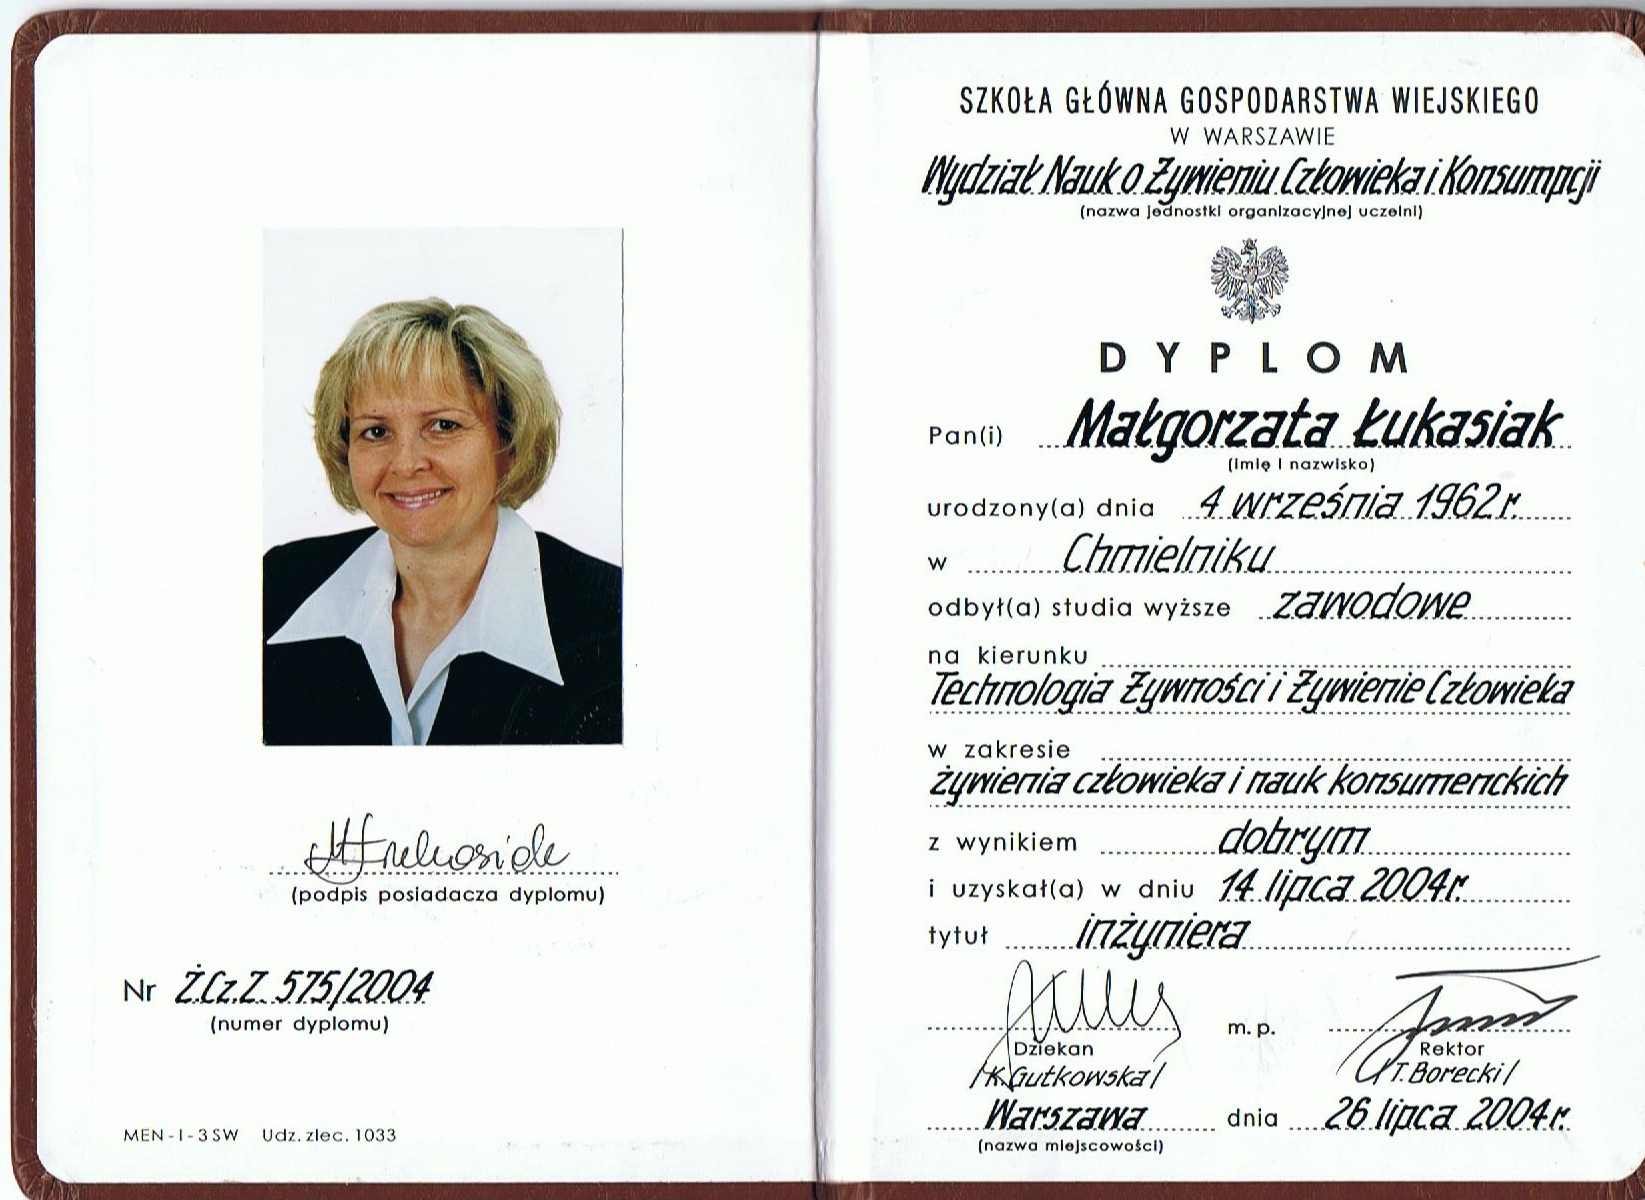 (podpis posiadacza dyplomu)
Nr Ż.Cz.Z. 575/2004
(numer dyplomu)
MEN-I-3SW Udz. zlec. 1033
SZKOŁA GŁÓWNA GOSPODARSTWA WIEJSKIEGO
W WARSZAWIE
Wydział Nauk o Żywieniu Człowieka i Konsumpcji
(nazwa jednostki organizacyjnej uczelni)
DYPLOM
Pan(i) Małgorzata Łukasiak
(imię i nazwisko)
urodzony(a) dnia 4 września 1962r.
w Chmielniku
odbył(a) studia wyższe zawodowe
na kierunku
Technologia Żywności i Żywienie Człowieka
w zakresie
żywienia człowieka i nauk konsumenckich
z wynikiem dobrym
i uzyskał(a) w dniu 14 lipca 2004r.
tytuł inżyniera
m.p.
Dziekan Rektor
/K.Gutkowska/ /T.Borecki/
Warszawa dnia 26 lipca 2004r.
(nazwa miejscowości)